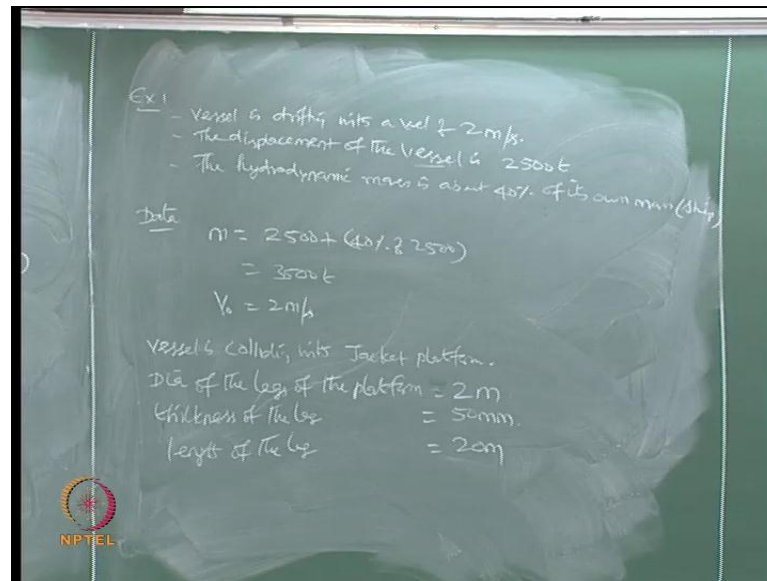 Ex 1
- Vessel is drifting with a vel of 2 m/s.
- The displacement of the vessel is 2500t
- The hydrodynamic mass is about 40% of its own mass (ship)
Data
m = 2500 + (40% of 2500)
= 3500t
V₀ = 2m/s
Vessel is colliding with Jacket platform.
Dia of the legs of the platform = 2m
thickness of the leg = 50mm.
length of the leg = 20m
NPTEL